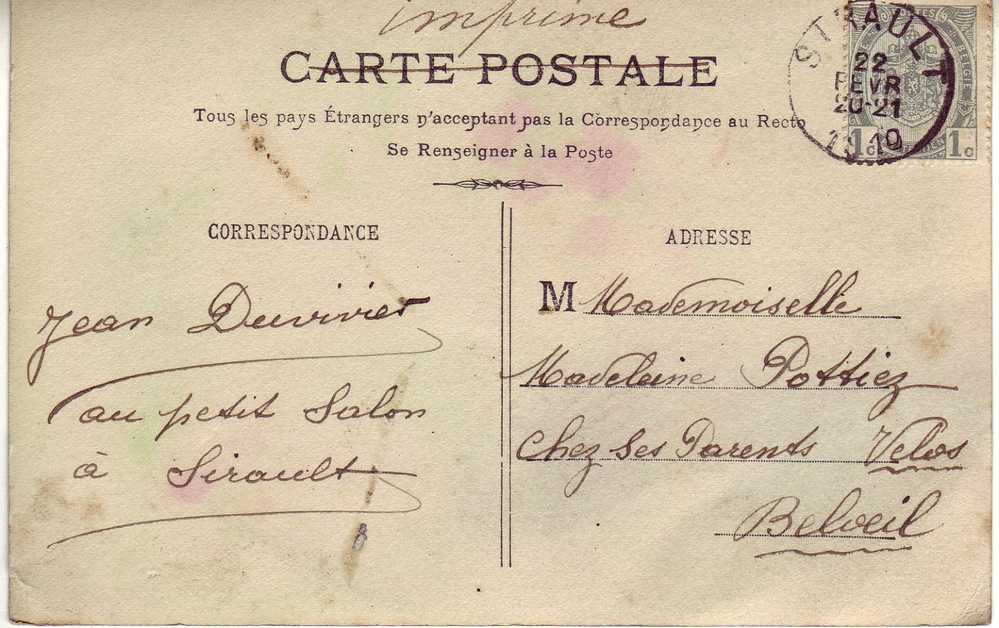 imprimé
CARTE POSTALE
Tous les pays Étrangers n'acceptant pas la Correspondance au Recto
Se Renseigner à la Poste
SIRAULT
22
FEVR
20-21
1910
1c 1c
CORRESPONDANCE
Jean Duvivier
au petit Salon
à Sirault
ADRESSE
M Mademoiselle
Madeleine Pottiez
chez ses Parents Vélos
Belœil